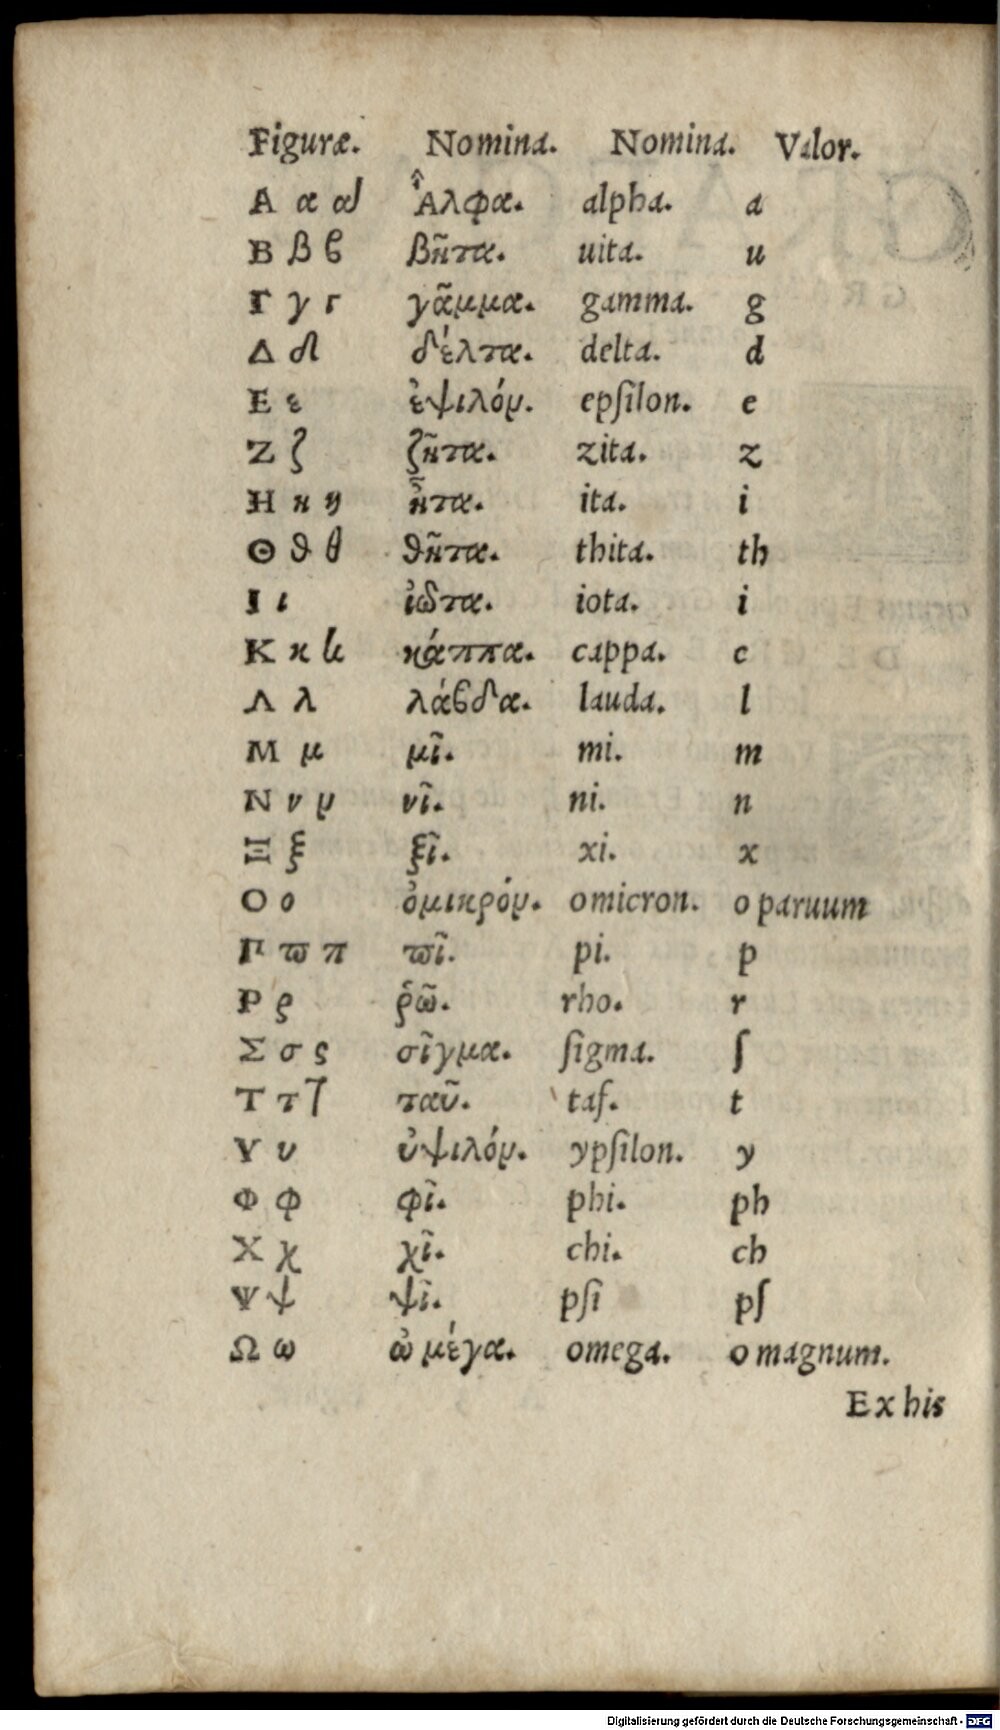 Figuræ. Nomina. Nomina. Valor.
Α α α Ἄλφα. alpha. a
Β β ϐ βῆτα. uita. u
Γ γ γ γᾶμμα. gamma. g
Δ δ δέλτα. delta. d
Ε ε ἐψιλόν. epſilon. e
Ζ ζ ζῆτα. zita. z
Η η η ἦτα. ita. i
Θ ϑ θ ϑῆτα. thita. th
Ι ι ἰῶτα. iota. i
Κ κ κ κάππα. cappa. c
Λ λ λάϐδα. lauda. l
Μ μ μῖ. mi. m
Ν ν ν νῖ. ni. n
Ξ ξ ξῖ. xi. x
Ο ο ὀμικρόν. omicron. o paruum
Π ϖ π ϖῖ. pi. p
Ρ ρ ῥῶ. rho. r
Σ σ ς σῖγμα. ſigma. ſ
Τ τ τ ταῦ. taf. t
Υ υ ὐψιλόν. ypſilon. y
Φ φ φῖ. phi. ph
Χ χ χῖ. chi. ch
Ψ ψ ψῖ. pſi pſ
Ω ω ὠ μέγα. omega. o magnum.
Ex his
Digitalisierung gefördert durch die Deutsche Forschungsgemeinschaft - DFG